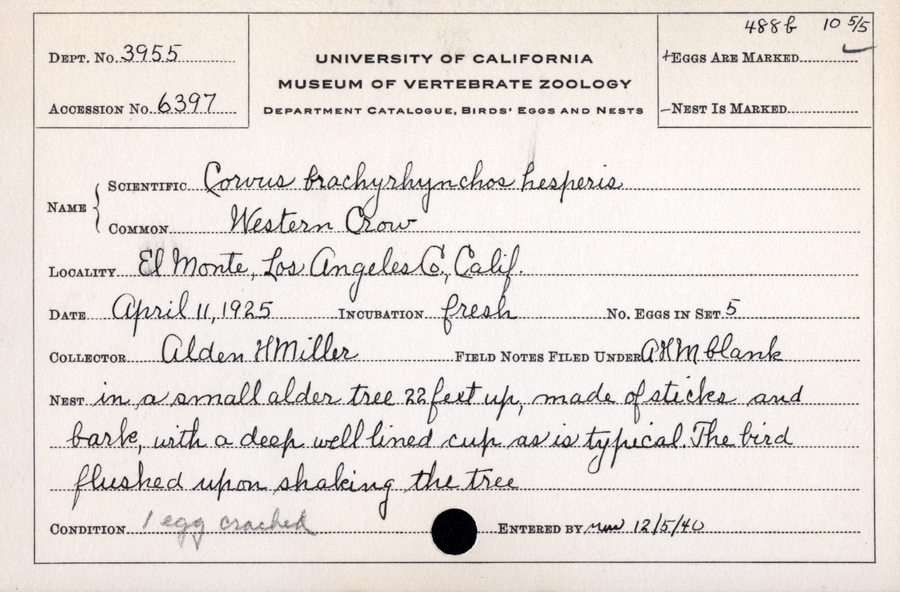 488b 10 5/5
Dept. No. 3955
UNIVERSITY OF CALIFORNIA
+Eggs Are Marked
MUSEUM OF VERTEBRATE ZOOLOGY
Accession No. 6397
Department Catalogue, Birds' Eggs and Nests
–Nest Is Marked
Name { Scientific Corvus brachyrhynchos hesperis
Common Western Crow
Locality El Monte, Los Angeles Co., Calif.
Date April 11, 1925 Incubation fresh No. Eggs in Set 5
Collector Alden H Miller Field Notes Filed Under AHM blank
Nest in a small alder tree 22 feet up, made of sticks and
bark, with a deep well lined cup as is typical. The bird
flushed upon shaking the tree
Condition 1 egg cracked Entered by 12/5/40